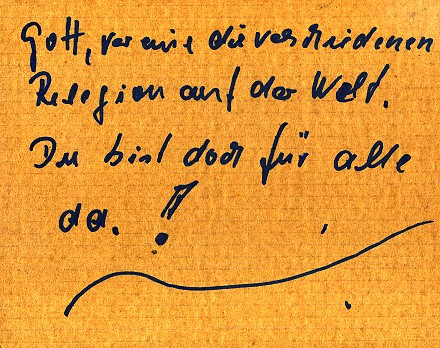 Gott, vereine die verschiedenen
Religion auf der Welt.
Du bist doch für alle
da. !